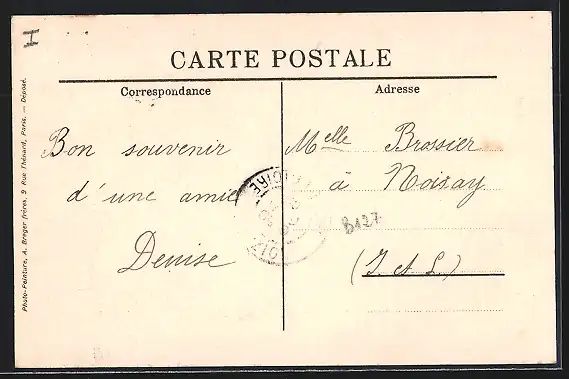 I
CARTE POSTALE
Correspondance
Adresse
Bon souvenir
d'une amie
Denise
Melle Brossier
à Noizay
(I. et L.)
B127
Photo-Peinture, A. Breger frères, 9 Rue Thénard, Paris. — Déposé.